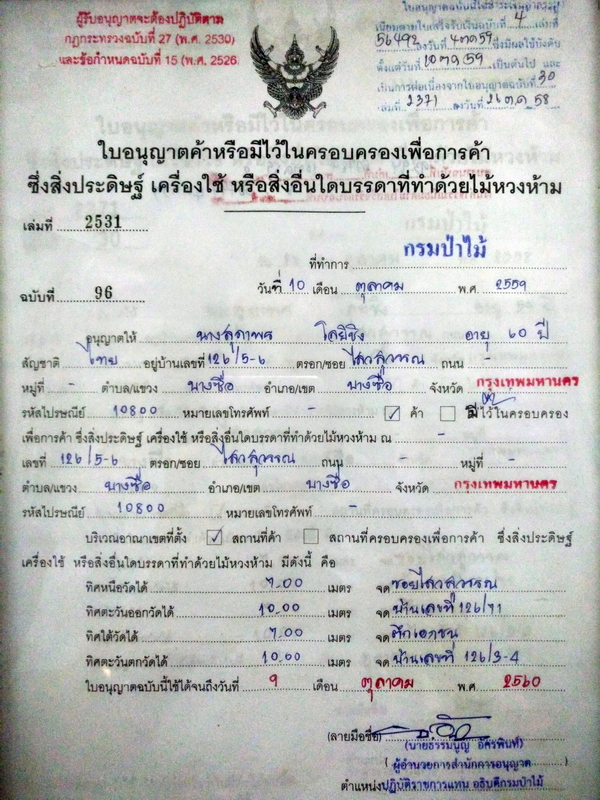 ผู้รับอนุญาตจะต้องปฏิบัติตาม
กฎกระทรวงฉบับที่ 27 (พ.ศ. 2530)
และข้อกำหนดฉบับที่ 15 (พ.ศ. 2526
ใบอนุญาตฉบับนี้ได้
เนียมตามใบเสร็จรับเงินฉบับที่ 4 เล่มที่
56492 ลงวันที่ 4 ตค 59 ซึ่งมีผลใช้บังคับ
ตั้งแต่วันที่ 10 ตค 59 เป็นต้นไป และ
เป็นการต่อเนื่องจากใบอนุญาตฉบับที่ 30
เล่มที่ 2371 ลงวันที่ 26 ต.ค 58
ใบอนุญาตค้าหรือมีไว้ในครอบครองเพื่อการค้า
ซึ่งสิ่งประดิษฐ์ เครื่องใช้ หรือสิ่งอื่นใดบรรดาที่ทำด้วยไม้หวงห้าม
เล่มที่ 2531
ที่ทำการ กรมป่าไม้
ฉบับที่ 96
วันที่ 10 เดือน ตุลาคม พ.ศ. 2559
อนุญาตให้ นางสุดาพร อายุ 60 ปี
สัญชาติ ไทย อยู่บ้านเลขที่ 126/5-6 ตรอก/ซอย ไสวสุวรรณ ถนน -
หมู่ที่ - ตำบล/แขวง บางซื่อ อำเภอ/เขต บางซื่อ จังหวัด กรุงเทพมหานคร
รหัสไปรษณีย์ 10800 หมายเลขโทรศัพท์ - ค้า มีไว้ในครอบครอง
เพื่อการค้า ซึ่งสิ่งประดิษฐ์ เครื่องใช้ หรือสิ่งอื่นใดบรรดาที่ทำด้วยไม้หวงห้าม ณ -
เลขที่ 126/5-6 ตรอก/ซอย ไสวสุวรรณ ถนน - หมู่ที่ -
ตำบล/แขวง บางซื่อ อำเภอ/เขต บางซื่อ จังหวัด กรุงเทพมหานคร
รหัสไปรษณีย์ 10800 หมายเลขโทรศัพท์ -
บริเวณอาณาเขตที่ตั้ง สถานที่ค้า สถานที่ครอบครองเพื่อการค้า ซึ่งสิ่งประดิษฐ์
เครื่องใช้ หรือสิ่งอื่นใดบรรดาที่ทำด้วยไม้หวงห้าม มีดังนี้ คือ
ทิศเหนือวัดได้ 7.00 เมตร จด ซอยไสวสุวรรณ
ทิศตะวันออกวัดได้ 10.00 เมตร จด บ้านเลขที่ 126/71
ทิศใต้วัดได้ 7.00 เมตร จด ตึกเอกชน
ทิศตะวันตกวัดได้ 10.00 เมตร จด บ้านเลขที่ 126/3-4
ใบอนุญาตฉบับนี้ใช้ได้จนถึงวันที่ 9 เดือน ตุลาคม พ.ศ 2560
(ลายมือชื่อ)
(นายธรรมนูญ อัครพินท์)
(ผู้อำนวยการสำนักการอนุญาต
ตำแหน่ง ปฏิบัติราชการแทน อธิบดีกรมป่าไม้